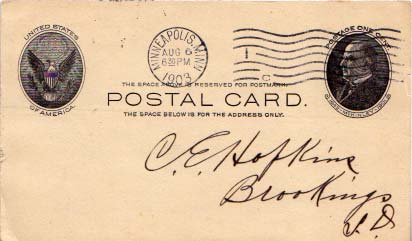 UNITED STATES
OF AMERICA
MINNEAPOLIS, MINN.
AUG 6
630 PM
1903
1
C
POSTAGE ONE CENT
1843 McKINLEY 1901
THE SPACE ABOVE IS RESERVED FOR POSTMARK.
POSTAL CARD.
THE SPACE BELOW IS FOR THE ADDRESS ONLY.
C. E. Hopkins
Brookings
S. D